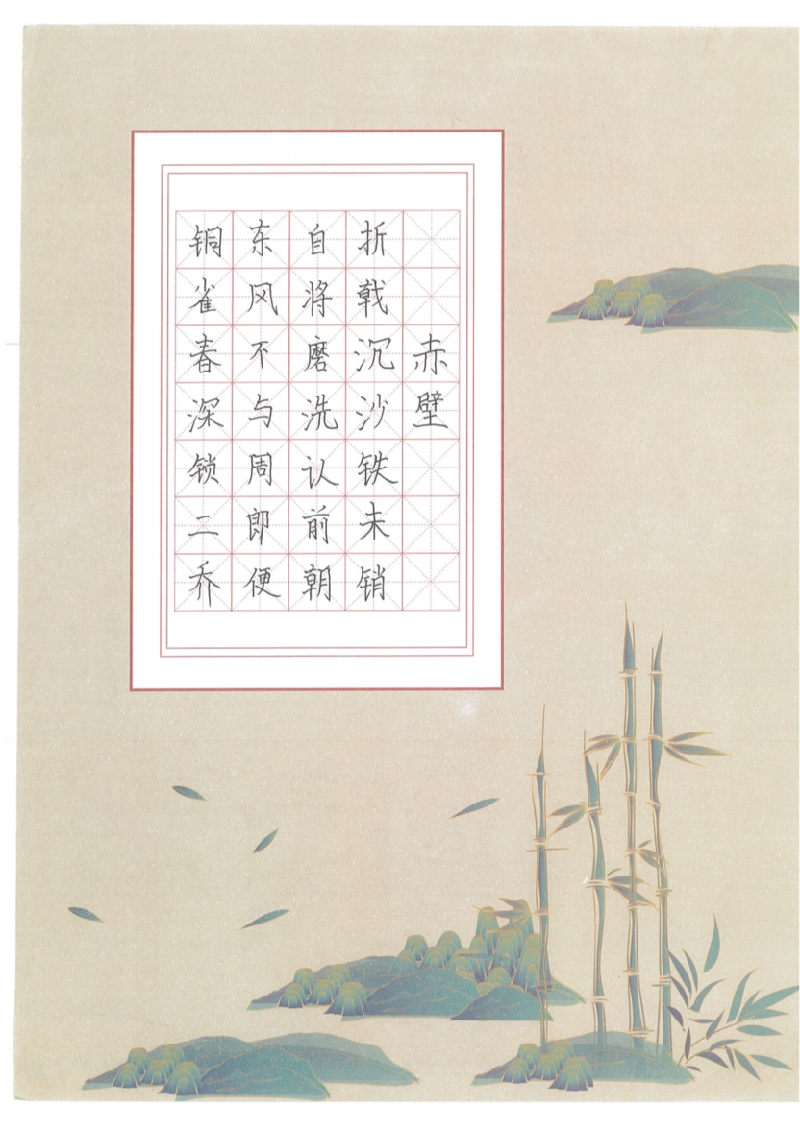 赤壁
折戟沉沙铁未销
自将磨洗认前朝
东风不与周郎便
铜雀春深锁二乔